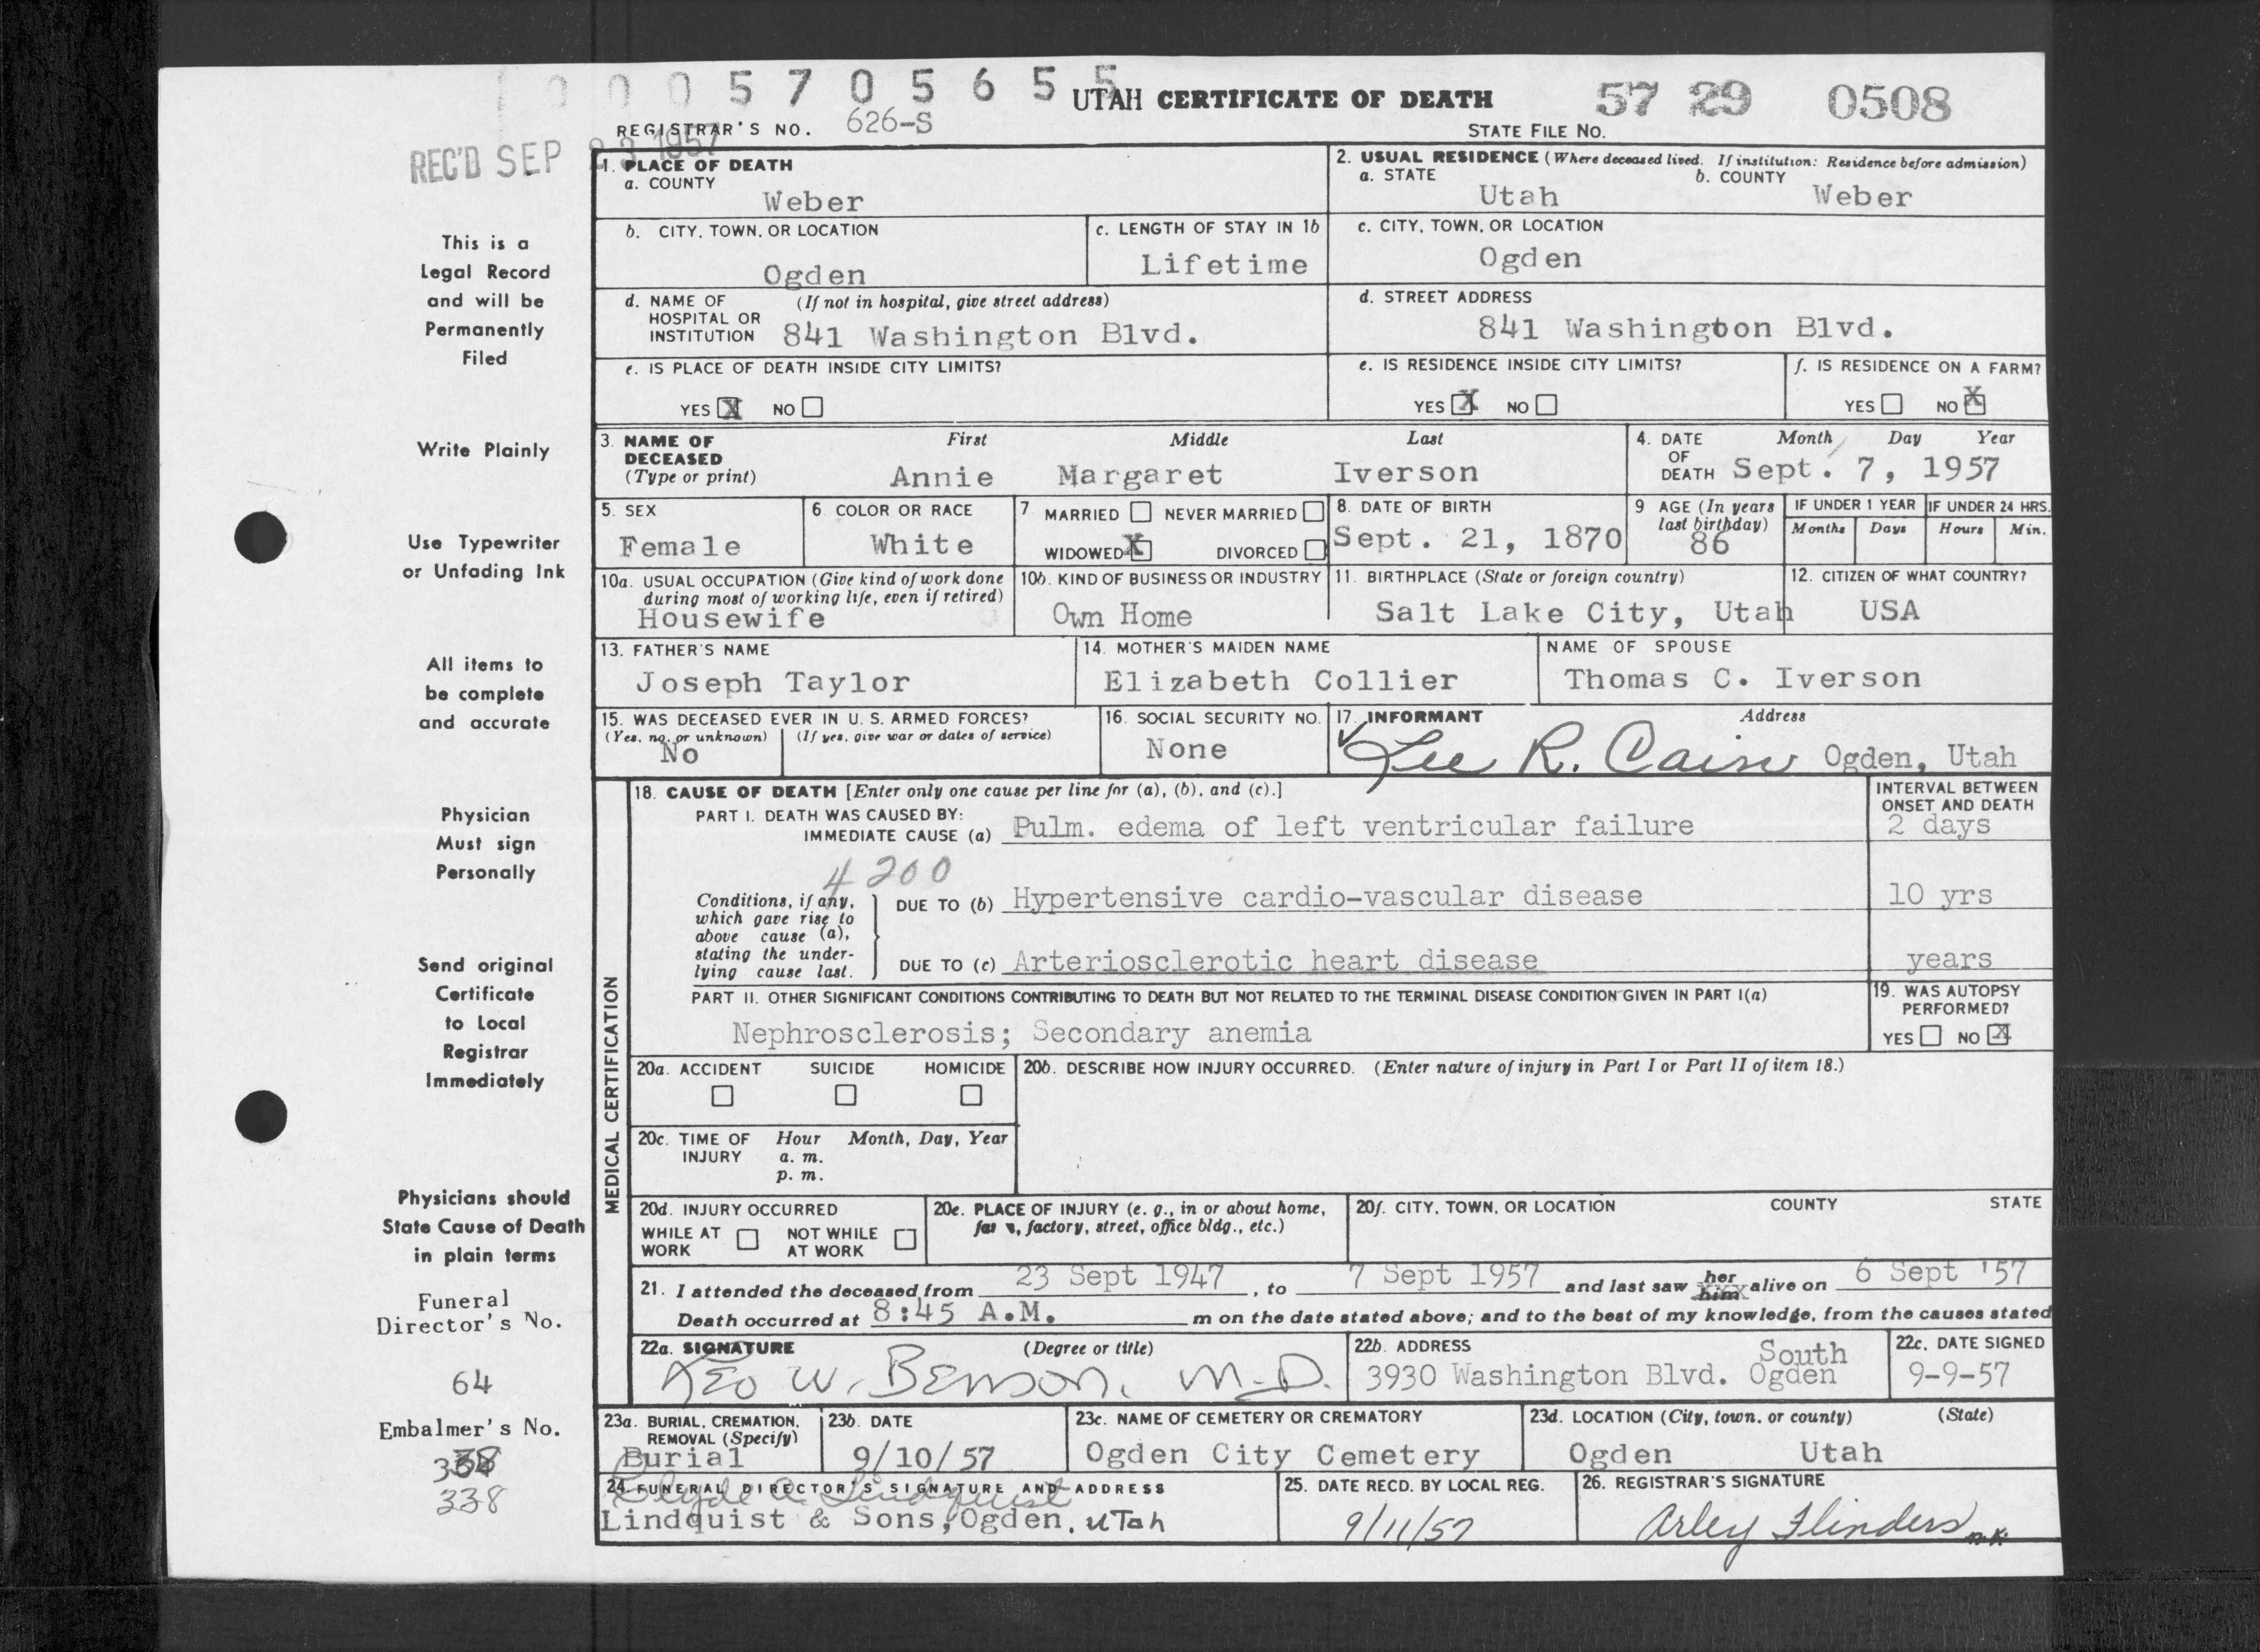 0 0 0 5 7 0 5 6 5 5
UTAH CERTIFICATE OF DEATH
57 29 0508
REGISTRAR'S NO. 626-S
STATE FILE NO.
REC'D SEP 23 1957
This is a
Legal Record
and will be
Permanently
Filed
Write Plainly
Use Typewriter
or Unfading Ink
All items to
be complete
and accurate
Physician
Must sign
Personally
Send original
Certificate
to Local
Registrar
Immediately
Physicians should
State Cause of Death
in plain terms
Funeral
Director's No.
64
Embalmer's No.
338
1. PLACE OF DEATH
a. COUNTY
Weber
2. USUAL RESIDENCE (Where deceased lived. If institution: Residence before admission)
a. STATE b. COUNTY
Utah Weber
b. CITY, TOWN, OR LOCATION
Ogden
c. LENGTH OF STAY IN 1b
Lifetime
c. CITY, TOWN, OR LOCATION
Ogden
d. NAME OF (If not in hospital, give street address)
HOSPITAL OR
INSTITUTION 841 Washington Blvd.
d. STREET ADDRESS
841 Washington Blvd.
e. IS PLACE OF DEATH INSIDE CITY LIMITS?
YES X NO
e. IS RESIDENCE INSIDE CITY LIMITS?
YES X NO
f. IS RESIDENCE ON A FARM?
YES NO X
3. NAME OF First Middle Last
DECEASED
(Type or print) Annie Margaret Iverson
4. DATE Month Day Year
OF
DEATH Sept. 7, 1957
5. SEX
Female
6. COLOR OR RACE
White
7 MARRIED NEVER MARRIED
WIDOWED X DIVORCED
8. DATE OF BIRTH
Sept. 21, 1870
9 AGE (In years
last birthday)
86
IF UNDER 1 YEAR IF UNDER 24 HRS.
Months Days Hours Min.
10a. USUAL OCCUPATION (Give kind of work done
during most of working life, even if retired)
Housewife
10b. KIND OF BUSINESS OR INDUSTRY
Own Home
11. BIRTHPLACE (State or foreign country)
Salt Lake City, Utah
12. CITIZEN OF WHAT COUNTRY?
USA
13. FATHER'S NAME
Joseph Taylor
14. MOTHER'S MAIDEN NAME
Elizabeth Collier
NAME OF SPOUSE
Thomas C. Iverson
15. WAS DECEASED EVER IN U. S. ARMED FORCES?
(Yes, no, or unknown) (If yes, give war or dates of service)
No
16. SOCIAL SECURITY NO.
None
17. INFORMANT Address
Lee R. Ogden, Utah
MEDICAL CERTIFICATION
18. CAUSE OF DEATH [Enter only one cause per line for (a), (b), and (c).]
INTERVAL BETWEEN
ONSET AND DEATH
PART I. DEATH WAS CAUSED BY:
IMMEDIATE CAUSE (a) Pulm. edema of left ventricular failure 2 days
4200
Conditions, if any,
which gave rise to
above cause (a),
stating the under-
lying cause last.
DUE TO (b) Hypertensive cardio-vascular disease 10 yrs
DUE TO (c) Arteriosclerotic heart disease years
PART II. OTHER SIGNIFICANT CONDITIONS CONTRIBUTING TO DEATH BUT NOT RELATED TO THE TERMINAL DISEASE CONDITION GIVEN IN PART I(a)
Nephrosclerosis; Secondary anemia
19. WAS AUTOPSY
PERFORMED?
YES NO X
20a. ACCIDENT SUICIDE HOMICIDE
20b. DESCRIBE HOW INJURY OCCURRED. (Enter nature of injury in Part I or Part II of item 18.)
20c. TIME OF Hour Month, Day, Year
INJURY a. m.
p. m.
20d. INJURY OCCURRED
WHILE AT NOT WHILE
WORK AT WORK
20e. PLACE OF INJURY (e. g., in or about home,
factory, street, office bldg., etc.)
20f. CITY, TOWN, OR LOCATION COUNTY STATE
21. I attended the deceased from 23 Sept 1947, to 7 Sept 1957 and last saw her him alive on 6 Sept '57
Death occurred at 8:45 A.M. m on the date stated above; and to the best of my knowledge, from the causes stated
22a. SIGNATURE (Degree or title)
Leo W. Benson, M.D.
22b. ADDRESS
South
3930 Washington Blvd. Ogden
22c. DATE SIGNED
9-9-57
23a. BURIAL, CREMATION,
REMOVAL (Specify)
Burial
23b. DATE
9/10/57
23c. NAME OF CEMETERY OR CREMATORY
Ogden City Cemetery
23d. LOCATION (City, town, or county) (State)
Ogden Utah
24. FUNERAL DIRECTOR'S SIGNATURE AND ADDRESS
Clyde A. Lindquist
Lindquist & Sons, Ogden, Utah
25. DATE RECD. BY LOCAL REG.
9/11/57
26. REGISTRAR'S SIGNATURE
Arley Flinders